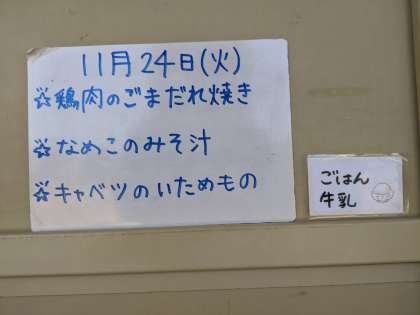 11月24日(火)
☆鶏肉のごまだれ焼き
☆なめこのみそ汁
☆キャベツのいためもの
ごはん
牛乳